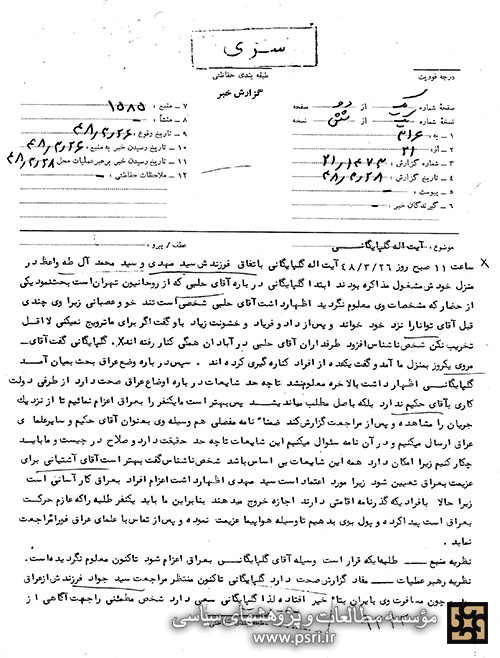 سری
طبقه بندی حفاظتی
درجه فوریت
گزارش خبر
صفحه شماره یک از دو صفحه
نسخه شماره یک از شش نسخه
۱ ـ به : ۳۱۶
۲ ـ از : ۲۱
۳ ـ شماره گزارش : ۲۱/۱۴۷۳
۴ ـ تاریخ گزارش : ۴۸/۳/۲۸
۵ ـ پیوست :
۶ ـ گیرندگان خبر :
۷ ـ منبع : ۱۵۸۵
۸ ـ منشأ :
۹ ـ تاریخ وقوع : ۴۸/۳/۲۶
۱۰ ـ تاریخ رسیدن خبر به منبع : ۴۸/۳/۲۶
۱۱ ـ تاریخ رسیدن خبر به رهبر عملیات محل ۴۸/۳/۲۸
۱۲ ـ ملاحظات حفاظتی :
موضوع : آیت اله گلپایگانی عطف / پیرو :
ساعت ۱۱ صبح روز ۴۸/۳/۲۶ آیت اله گلپایگانی باتفاق فرزندش سید مهدی و سید محمد آل طه واعظ در
منزل خودش مشغول مذاکره بودند ابتدا گلپایگانی در باره آقای حلبی که از روحانیون تهران است بحث نمود یکی
از حضار که مشخصات وی معلوم نگردید اظهار داشت آقای حلبی شخصی است تند خو و عصبانی زیرا وی چندی
قبل آقای توانا را نزد خود خواند و پس از داد و فریاد و خشونت زیاد باو گفت اگر برای ما ترویج نمیکنی لااقل
تخریب نکن شخص ناشناس افزود طرفداران آقای حلبی در آبادان همگی کنار رفته اند، گلپایگانی گفت آقای
مروی یکروز بمنزل ما آمد و گفت یکعده از افراد کناره گیری کرده اند . سپس در باره وضع عراق بحث بمیان آمد
گلپایگانی اظهار داشت بالاخره معلوم نشد تا چه حد شایعات در باره اوضاع عراق صحت دارد از طرفی دولت
کاری با آقای حکیم ندارد بلکه با اصل مطلب میاندیشد پس بهتر است ما یکنفر را بعراق اعزام نمائیم تا از نزدیک
جریان را مشاهده و پس از مراجعت گزارش کند ضمنا" نامه مفصلی هم وسیله وی بعنوان آقای حکیم و سایر علمای
عراق ارسال میکنیم و در آن نامه سئوال میکنیم این شایعات تا چه حد حقیقت دارد و صلاح در چیست و ما باید
چکار کنیم زیرا امکان دارد همه این شایعات بی اساس باشد شخص ناشناس گفت بهتر است آقای آشتیانی برای
عزیمت بعراق تعیین شود زیرا مورد اعتماد است سید مهدی اظهار داشت اعزام افراد بعراق کار آسانی است
زیرا حالا بافرادیکه گذرنامه اقامتی دارند اجازه خروج میدهند بنابراین ما باید یکنفر طلبه را که عازم حرکت
بعراق است پیدا کرده و پول بوی بدهیم تا وسیله هواپیما عزیمت نموده و پس از تماس با علمای عراق فورا" مراجعت
نماید .
نظریه منبع ـ طلبه ایکه قرار است وسیله آقای گلپایگانی بعراق اعزام شود تاکنون معلوم نگردیده است.
نظریه رهبر عملیات ـ مفاد گزارش صحت دارد گلپایگانی تاکنون منتظر مراجعت سید جواد فرزندش از عراق
چون مسافرت وی بایران بتأخیر افتاده لذا گلپایگانی سعی دارد شخص مطمئنی را جهت آگاهی از
مؤسسه مطالعات و پژوهشهای سیاسی
www.psri.ir